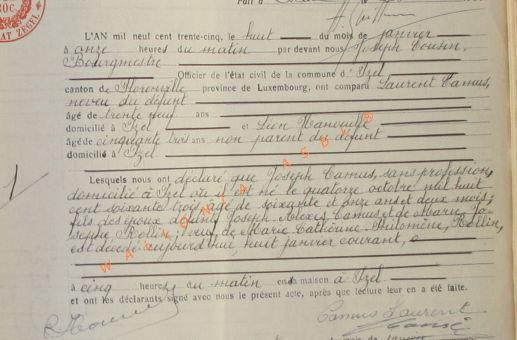 L'AN mil neuf cent trente-cinq, le huit du mois de janvier
à onze heures du matin par devant nous Joseph Cousin,
Bourgmestre
Officier de l'état civil de la commune d'Izel
canton de Florenville province de Luxembourg, ont comparu Laurent Camus,
neveu du défunt
âgé de trente neuf ans
domicilié à Izel et Léon
âgé de cinquante trois ans non parent du défunt
domicilié à Izel
Lesquels nous ont déclaré que Joseph Camus, sans profession,
domicilié à Izel où il est né le quatorze octobre mil huit
cent soixante trois, âgé de soixante et onze ans et deux mois,
fils des époux défunts Joseph Alexis Camus et de Marie Jo-
sephe Rollin; veuf de Marie Catherine Philomène Rollin,
est décédé aujourd'hui, huit janvier courant,
à cinq heures du matin en sa maison à Izel
et ont les déclarants signé avec nous le présent acte, après que lecture leur en a été faite.
Camus Laurent
1